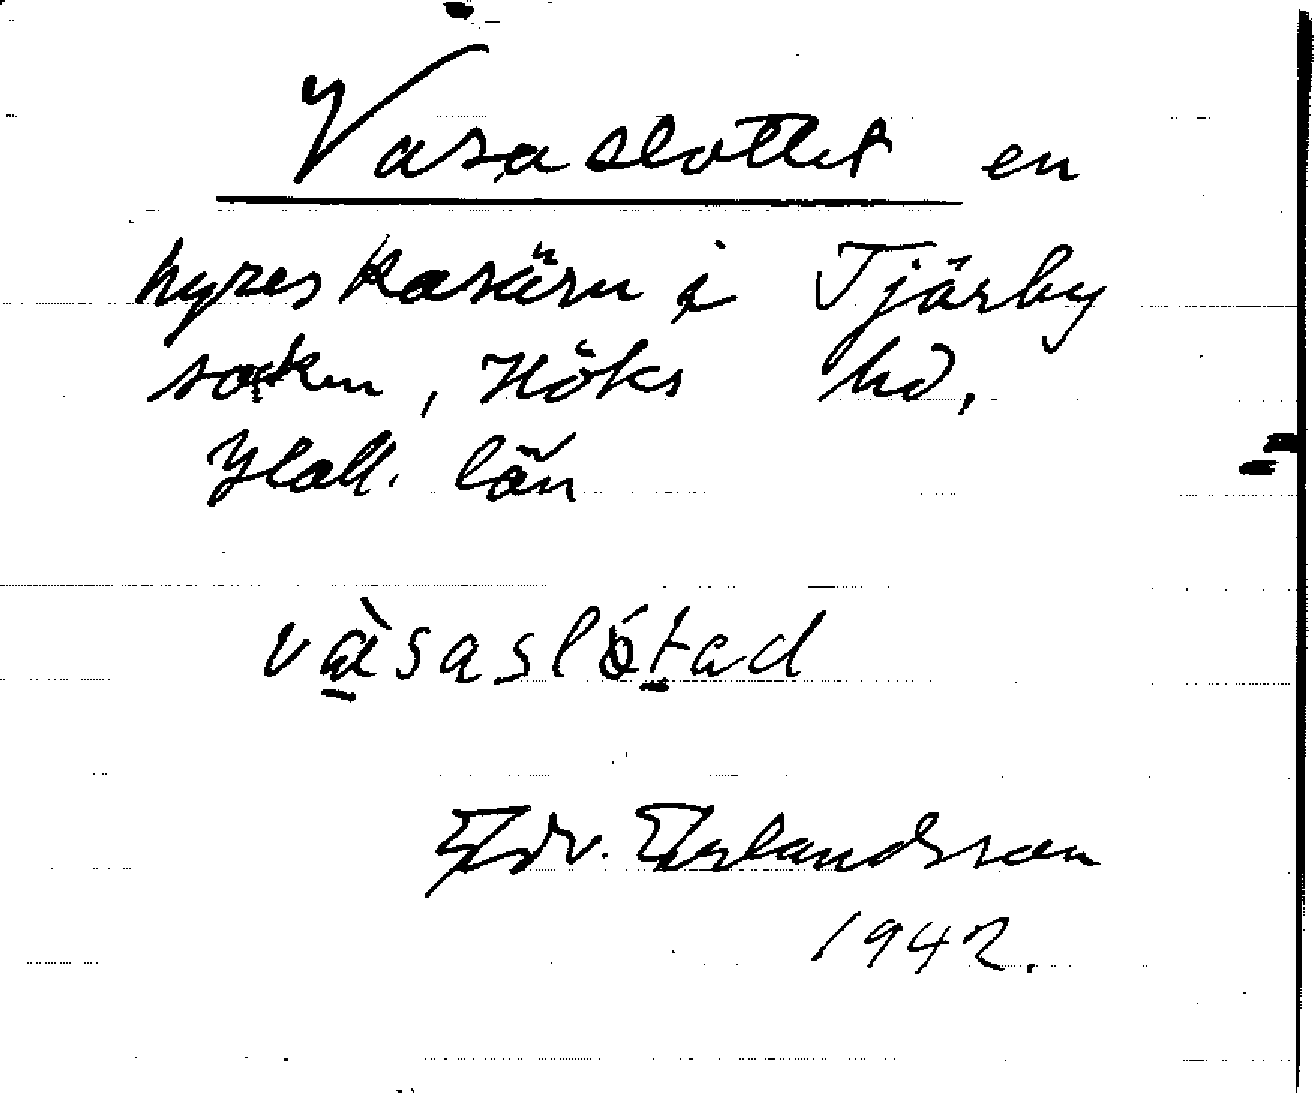 Vasaslottet en
hyreskasärn i Tjärby
sokn, Höks hd,
Hall. län
và̱saslóṯad
Edv. Erlandsson
1942.